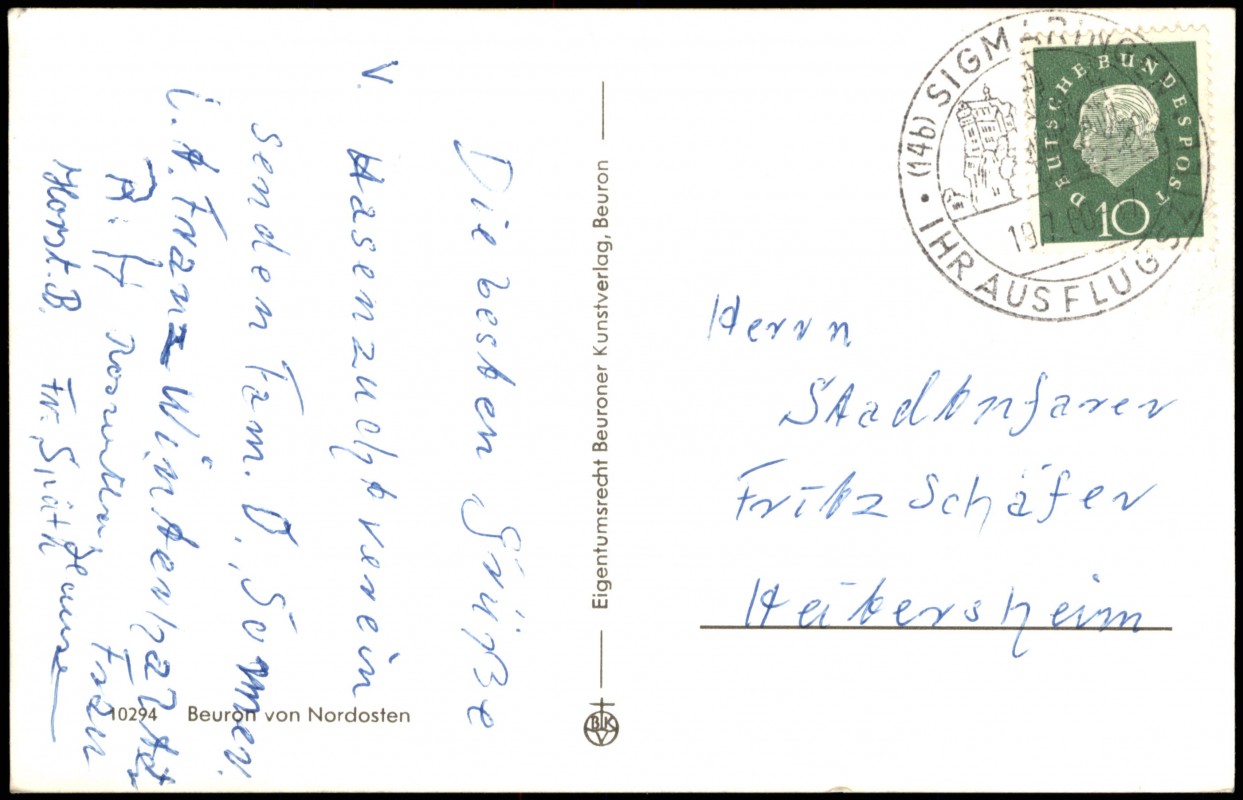 Die besten Grüße
v. Hasenzuchtverein
senden Fam. O. Sommer.
i. A. Franz Winterhalter
Frau
Horst. B. Fr. Späth
Eigentumsrecht Beuroner Kunstverlag, Beuron
BKV
10294 Beuron von Nordosten
(14b) SIGMARING
IHR AUSFLUGS
19.7.60
DEUTSCHE BUNDESPOST
10
Herrn
Stadtpfarrer
Fritz Schäfer
Heitersheim